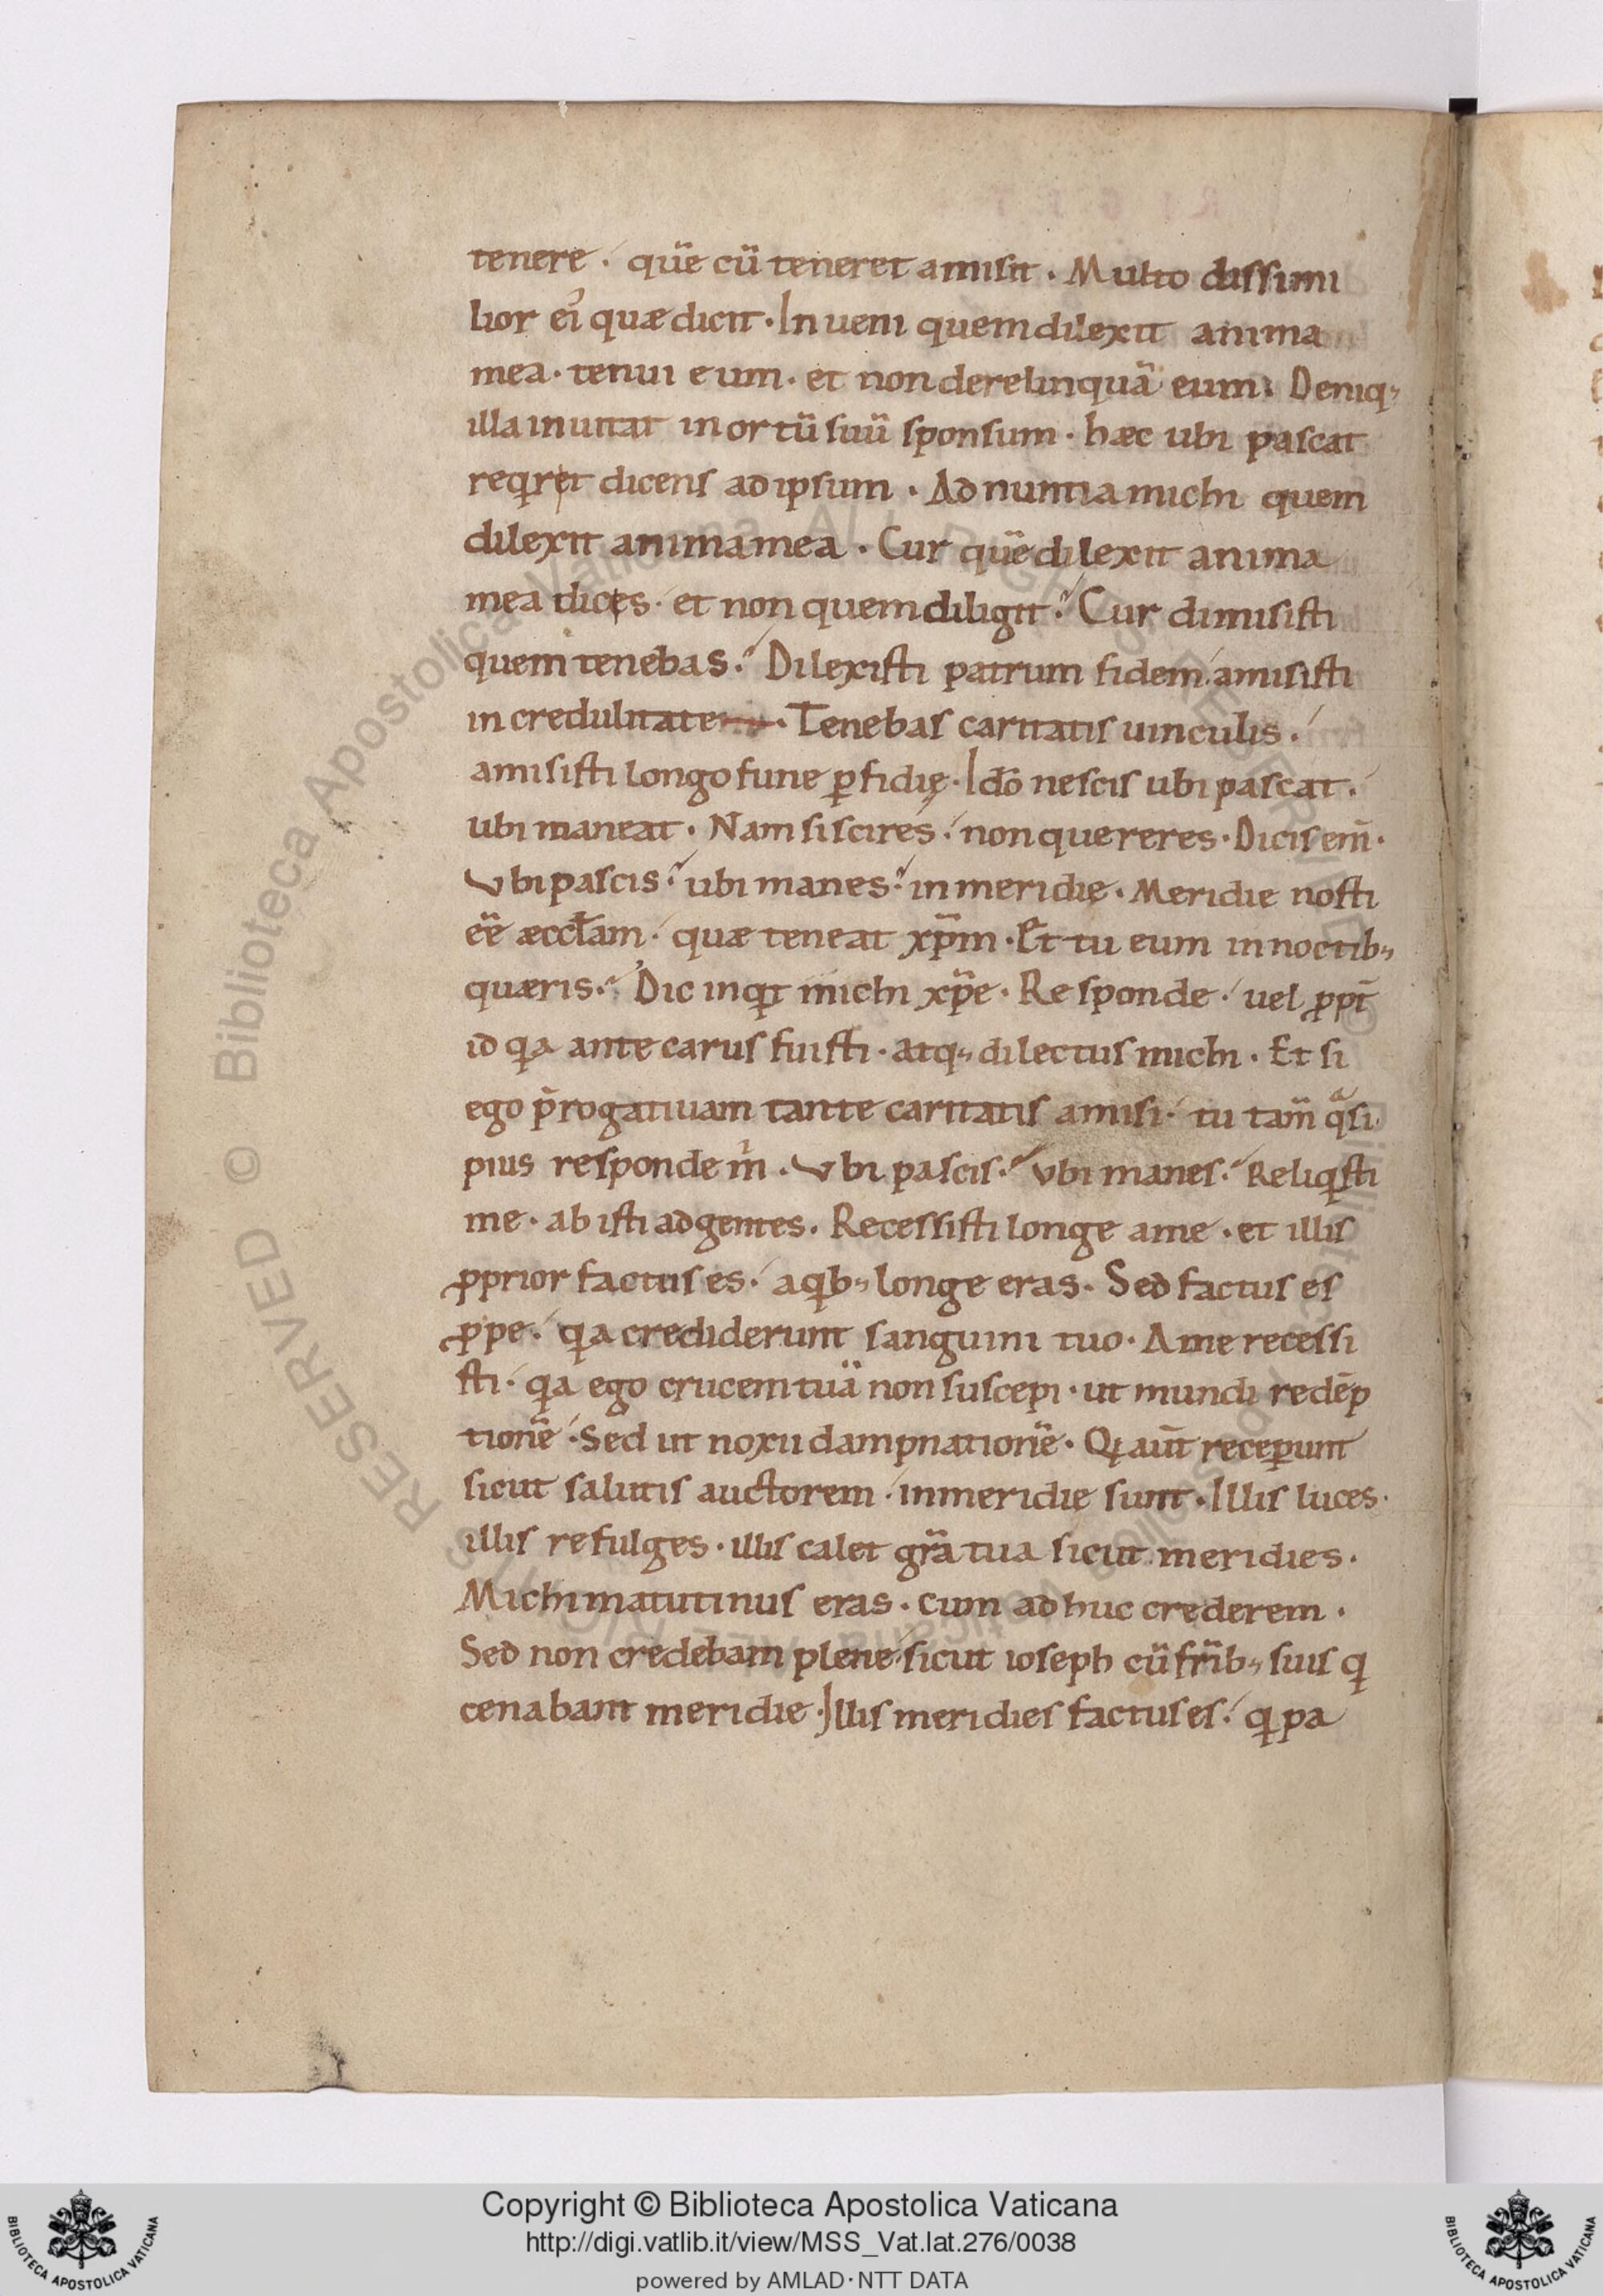 tenere· quē cū teneret amisit· Multo dissimi
lior eĩ quæ dicit· Inueni quem dilexit anima
mea· tenui eum· et non derelinquā eum· Deniq;
illa inuitat in ortū suū sponsum· hæc ubi pascat
reqͥret dicens ad ipsum· Adnuntia michi quem
dilexit anima mea· Cur quē dilexit anima
mea dicęs· et non quem diligit? Cur dimisisti
quem tenebas? Dilexisti patrum fidem· amisisti
incredulitate· Tenebas caritatis uinculis·
amisisti longo fune ꝑfidię· Idō nescis ubi pascat·
ubi maneat· Nam si scires· non quereres· Dicis em̄·
Vbi pascis? ubi manes? in meridię· Meridie nosti
eē æccłam· quæ teneat xp̄m· Et tu eum in noctib;
quæris? Dic inqͥt michi xp̄e· Responde· uel ꝓpt̄
id qͥa ante carus fuisti· atq; dilectus michi· Et si
ego p̄rogatiuam tante caritatis amisi· tu tam̄ qͣsi
pius responde m̄· Vbi pascis? Vbi manes? Reliqͥsti
me· abisti ad gentes· Recessisti longe a me· et illis
ꝓprior factus es· a qͥb; longe eras· Sed factus es
ꝓpe· qͥa crediderunt sanguini tuo· A me recessi
sti· qͥa ego crucem tuā non suscepi· ut mundi redēp
tionē· Sed ut noxii dampnationē· Qͥ aut̄ receperunt
sicut salutis auctorem· in meridię sunt· Illis luces·
illis refulges· illis calet gr̄a tua sicut meridies·
Michi matutinus eras· cum adhuc crederem·
Sed non credebam plene· sicut ioseph cū fr̄ib; suis qͥ
cenabant meridie· Illis meridies factus es· qͥ pa
© Biblioteca Apostolica Vaticana ALL RIGHTS RESERVED
Copyright © Biblioteca Apostolica Vaticana
http://digi.vatlib.it/view/MSS_Vat.lat.276/0038
powered by AMLAD·NTT DATA
BIBLIOTECA APOSTOLICA VATICANA
BIBLIOTECA APOSTOLICA VATICANA